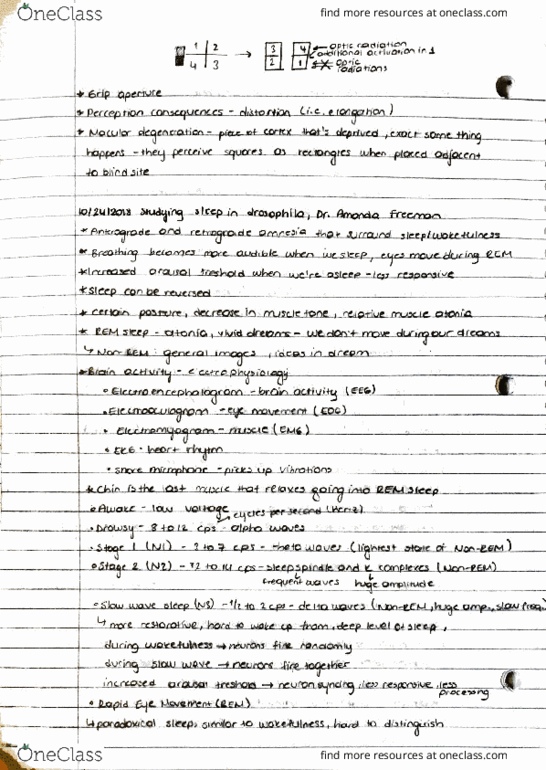 OneClass
find more resources at oneclass.com
1 2
4 3
3
2
4
1
optic radiation
additional activation in 1
optic
radiations
* Grip aperture
* Perception consequences - distortion (i.e. elongation)
* Macular degeneration - piece of cortex that's deprived, exact same thing
happens - they perceive squares as rectangles when placed adjacent
to blind site
10/24/2018 studying sleep in drosophila, Dr. Amanda Freeman
* Antrograde and retrograde amnesia that surround sleep/wakefulness
* Breathing becomes more audible when we sleep, eyes move during REM
* Increased arousal treshold when we're asleep - less responsive
* Sleep can be reversed
* certain posture, decrease in muscle tone, relative muscle atonia
* REM sleep - atonia, vivid dreams - we don't move during our dreams
↳ Non-REM: general images, ideas in dream
* Brain activity - electrophysiology
• Electroencephalogram - brain activity (EEG)
• Electrooculogram - eye movement (EOG)
• Electromyogram - muscle (EMG)
• EKG - heart rhythm
• snore microphone - picks up vibrations
* Chin is the last muscle that relaxes going into REM sleep
• Awake - low voltage
↳ cycles per second (hertz)
• Drowsy - 8 to 12 cps - alpha waves
• Stage 1 (N1) - 3 to 7 cps - theta waves (lightest state of Non-REM)
• Stage 2 (N2) - 12 to 14 cps - sleep spindle and k complexes (Non-REM)
frequent waves huge amplitude
• Slow wave sleep (N3) - 1/2 to 2 cps - delta waves (Non-REM, huge amp., slow freq.
↳ more restorative, hard to wake up from, deep level of sleep,
during wakefulness → neurons fire randomly
during slow wave → neurons fire together
increased arousal treshold → neuron syncing, less responsive, less
processing
• Rapid Eye Movement (REM)
↳ paradoxical sleep, similar to wakefulness, hard to distinguish
OneClass
find more resources at oneclass.com